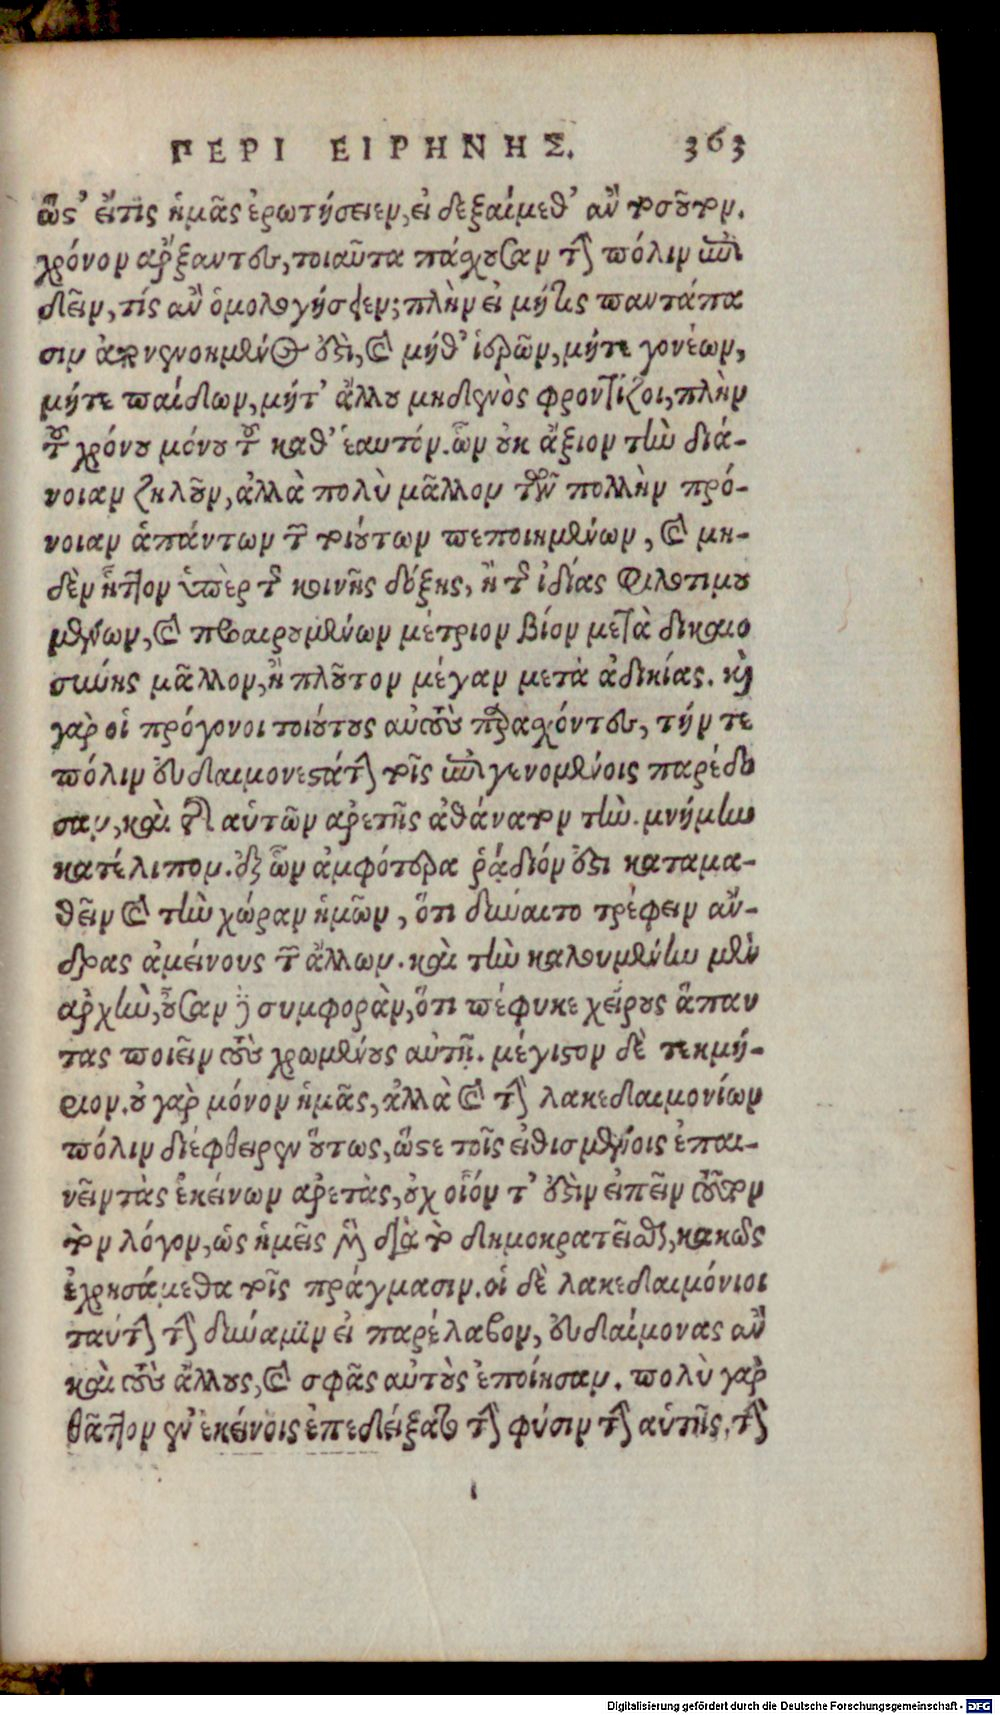 ΠΕΡΙ ΕΙΡΗΝΗΣ. 363
ὥστ' εἴτις ἡμᾶς ἐρωτήσειεν, εἰ δεξαίμεθ' ἂν τοσοῦτον
χρόνον ἄρξαντες, τοιαῦτα πάσχουσαν τὴν πόλιν ἐπι
δεῖν, τίς ἂν ὁμολογήσειεν; πλὴν εἰ μή τις παντάπα
σιν ἀπονενοημένος ἐστὶ, καὶ μήθ' ἱερῶν, μήτε γονέων,
μήτε παίδων, μήτ' ἄλλου μηδενὸς φροντίζοι, πλὴν
τοῦ χρόνου μόνου τοῦ καθ' ἑαυτόν. ὧν οὐκ ἄξιον τὴν διά-
νοιαν ζηλοῦν, ἀλλὰ πολὺ μᾶλλον τῶν πολλὴν πρό-
νοιαν ἁπάντων τῶν τοιούτων πεποιημένων, καὶ μη-
δὲν ἧττον ὑπὲρ τῆς κοινῆς δόξης, ἢ τῆς ἰδίας φιλοτιμου
μένων, καὶ προαιρουμένων μέτριον βίον μετὰ δικαιο
σύνης μᾶλλον, ἢ πλοῦτον μέγαν μετὰ ἀδικίας. καὶ
γὰρ οἱ πρόγονοι τοιούτους αὑτοὺς παρασχόντες, τήν τε
πόλιν εὐδαιμονεστάτην τοῖς ἐπιγενομένοις παρέδο
σαν, καὶ τῆς αὑτῶν ἀρετῆς ἀθάνατον τὴν μνήμην
κατέλιπον. ἐξ ὧν ἀμφότερα ῥᾴδιόν ἐστι καταμα-
θεῖν καὶ τὴν χώραν ἡμῶν, ὅτι δύναιτο τρέφειν ἄν-
δρας ἀμείνους τῶν ἄλλων. καὶ τὴν καλουμένην μὲν
ἀρχὴν, οὖσαν δὲ συμφορὰν, ὅτι πέφυκε χείρους ἅπαν
τας ποιεῖν τοὺς χρωμένους αὐτῇ. μέγιστον δὲ τεκμή-
ριον. οὐ γὰρ μόνον ἡμᾶς, ἀλλὰ καὶ τὴν λακεδαιμονίων
πόλιν διέφθειρεν οὕτως, ὥστε τοῖς εἰθισμένοις ἐπαι-
νεῖν τὰς ἐκείνων ἀρετὰς, οὐχ οἷόν τ' ἐστὶν εἰπεῖν τοῦτον
τὸν λόγον, ὡς ἡμεῖς μὲν διὰ τὸ δημοκρατεῖσθαι, κακῶς
ἐχρησάμεθα τοῖς πράγμασιν. οἱ δὲ λακεδαιμόνιοι
ταύτην τὴν δύναμιν εἰ παρέλαβον, εὐδαίμονας ἂν
καὶ τοὺς ἄλλους, καὶ σφᾶς αὐτοὺς ἐποίησαν. πολὺ γὰρ
θᾶττον ἐν ἐκείνοις ἐπεδείξατο τὴν φύσιν τὴν αὑτῆς, τὴν
Digitalisierung gefördert durch die Deutsche Forschungsgemeinschaft - DFG